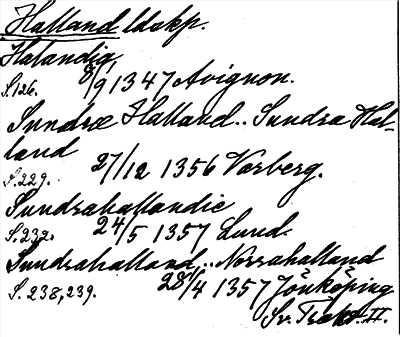 Halland ldskp.
Halandig
S. 126. 8/9 1347 Avignon.
Sundræ Halland.. Sundra Hal-
land
S. 229. 27/12 1356 Varberg.
Sundrahallandie
S. 232. 24/5 1357 Lund.
Sundrahalland,.. Norrahalland
S. 238, 239. 28/4 1357 Jönköping
Sv. Trakt. II.